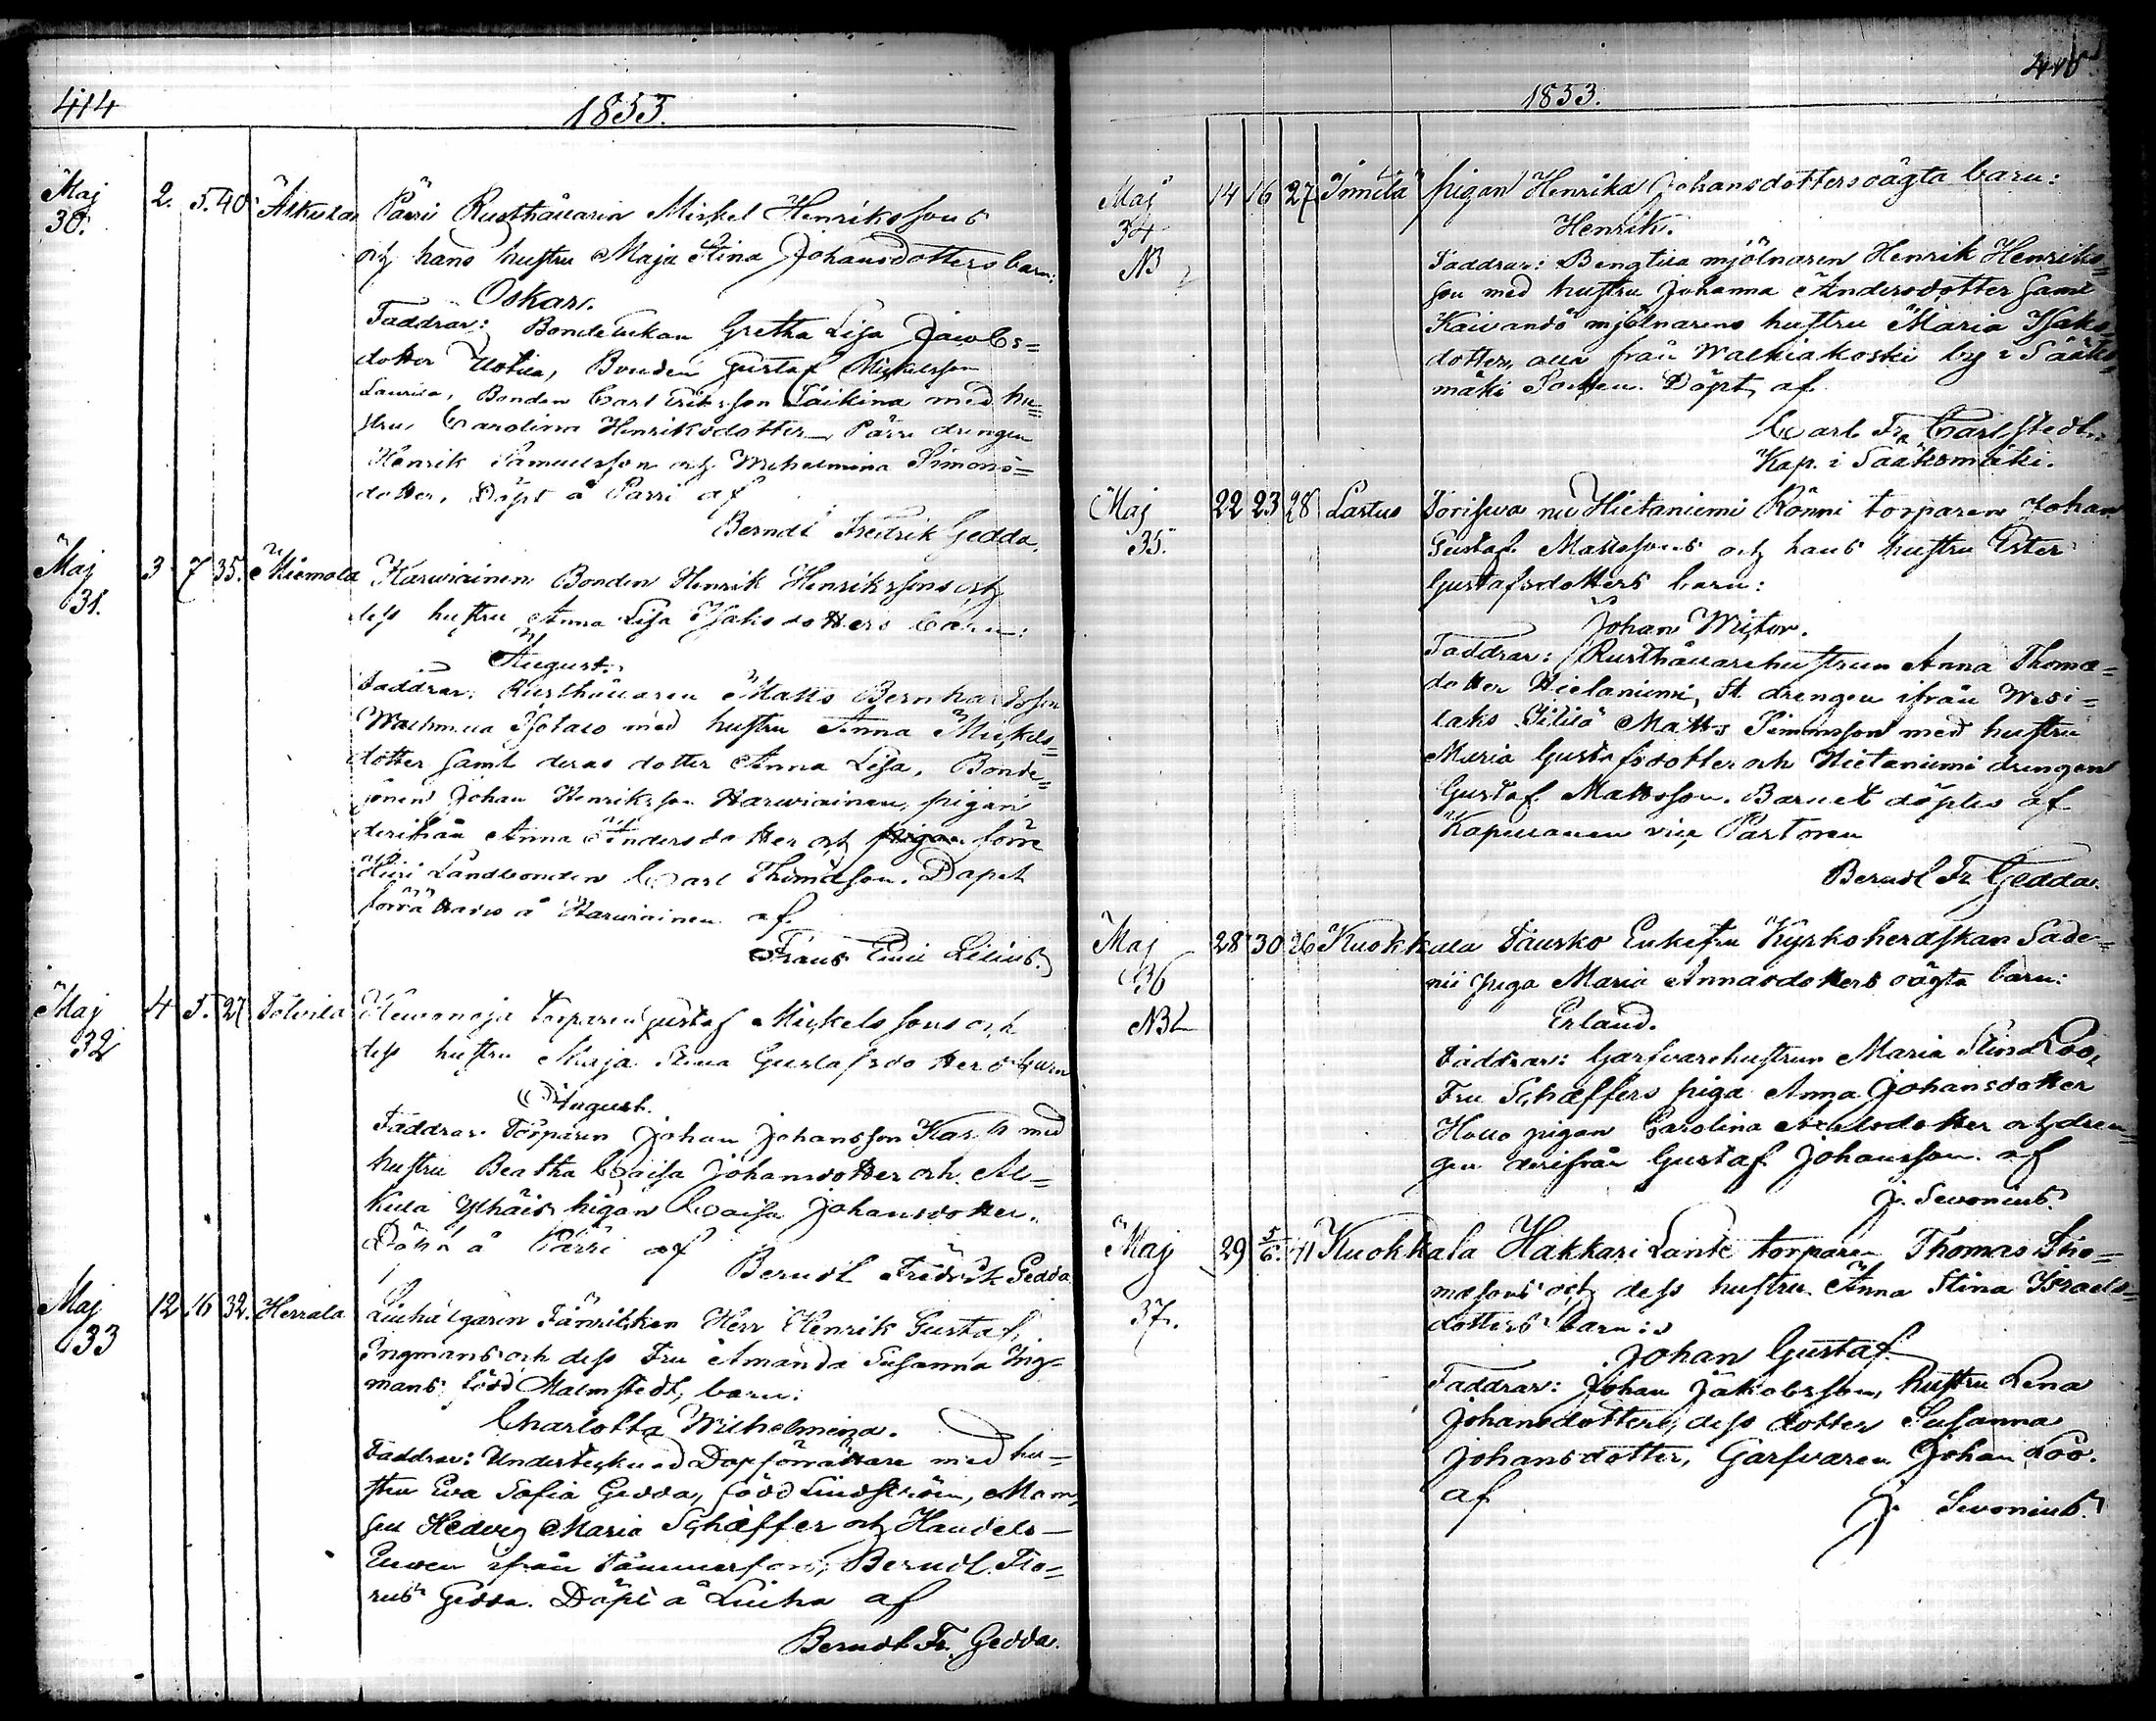 414
1853.
Maj 30. 2. 5. 40 Alkula Pärri Rusthållarin Mickel Henrikssons
och hans hustru Maja Stina Johansdotters barn:
Oskar.
Faddrar: Bondeenkan Gretha Lisa Jacobs=
dotter Uotila, Bonden Gustaf Mickelsson
Laurila, Bonden Carl Eriksson Taikina med hu=
stru Carolina Henriksdotter, Pärri drengen
Henrik Samuelsson och Wilhelmina Simons=
dotter, Döpt å Pärri af
Berndt Fredrik Gedda.
Maj 31. 3 7 35. Miemola Harwiainen Bonden Henrik Henrikssons och
dess hustru Anna Lisa Isaksdotters barn:
August.
Faddrar: Rusthållaren Matts Bernhardsson
Isotalo med hustru Anna Mickels=
dotter samt deras dotter Anna Lisa, Bonde=
sonen Johan Henriksson Harwiainen, pigan
derifrån Anna Andersdotter och pigan förre
Landbonden Carl Thomasson. Dopet
förrättades å Harwiainen af
Frans Emil Lilius.
Maj 32 4 5. 27 Tolvila torparen Gustaf Mickelssons och
dess hustru Maja Stina Gustafsdotters barn
August.
Faddrar: Torparen Johan Johansson med
hustru Beatha Caisa Johansdotter och Al=
kula Ylhäis pigan Caisa Johansdotter.
Döpt å Pärri af
Berndt Fredrik Gedda
Maj 33 12 16 32. Herrala Liuhalgaren Fänriken Herr Henrik Gustaf
Ingmans och dess Fru Amanda Susanna Ing=
mans, född Malmstedt, barn:
Charlotta Wilhelmina.
Faddrar: Undertecknad Dopförrättare med hu=
stru Eva Sofia Gedda, född Lindström, Mam=
sell Hedvig Maria Schæffer och Handels=
Eleven ifrån Tammerfors, Berndt Flo=
rus Gedda. Döpt å Liuha af
Berndt Fr. Gedda.
1853.
Maj 34 NB 14 16 27 Innilä pigan Henrika Johansdotters oägta barn:
Henrik.
Faddrar: Bengtila mjölnaren Henrik Henriks=
son med hustru Johanna Andersdotter samt
Kaivando mjölnarens hustru Maria Isaks=
dotter, alla från Walkiakoski by i Sääks=
mäki Socken. Döpt af
Carl Fr. Carlstedt
Kap. i Sääksmäki.
Maj 35. 22 23 28 Lastus Torisewa nu Hietaniemi Rönni torparen Johan
Gustaf Mattssons och hans hustru Ester
Gustafsdotters barn:
Johan Wictor.
Faddrar: Rusthållarehustrun Anna Thomæ=
dotter Hietaniemi, St. drengen ifrån Wesi=
laks Matts Simonsson med hustru
Maria Gustafsdotter och Hietaniemi drengen
Gustaf Mattsson. Barnet döptes af
Kapellanen vice Pastoren
Berndt Fr. Gedda.
Maj 36 NB 28 30 26 Kuokkala Tausko Enkefru Kyrkoherdskan Sade=
nii piga Maria Annasdotters oägta barn:
Erland.
Faddrar: Garfvarehustrun Maria Stina Loo,
Fru Schæffers piga Anna Johansdotter
Hollo pigan Carolina Axelsdotter och dren=
gen derifrån Gustaf Johansson. af
J. Sevonius.
Maj 37. 29 5/6. 41 Kuokkala Hakkari Lanki torparen Thomas Tho=
mæsons och dess hustru Anna Stina Israels=
dotters barn:
Johan Gustaf.
Faddrar: Johan Jakobsson, hustru Lena
Johansdotter, dess dotter Susanna
Johansdotter, Garfvaren Johan Loo.
af J. Sevonius.